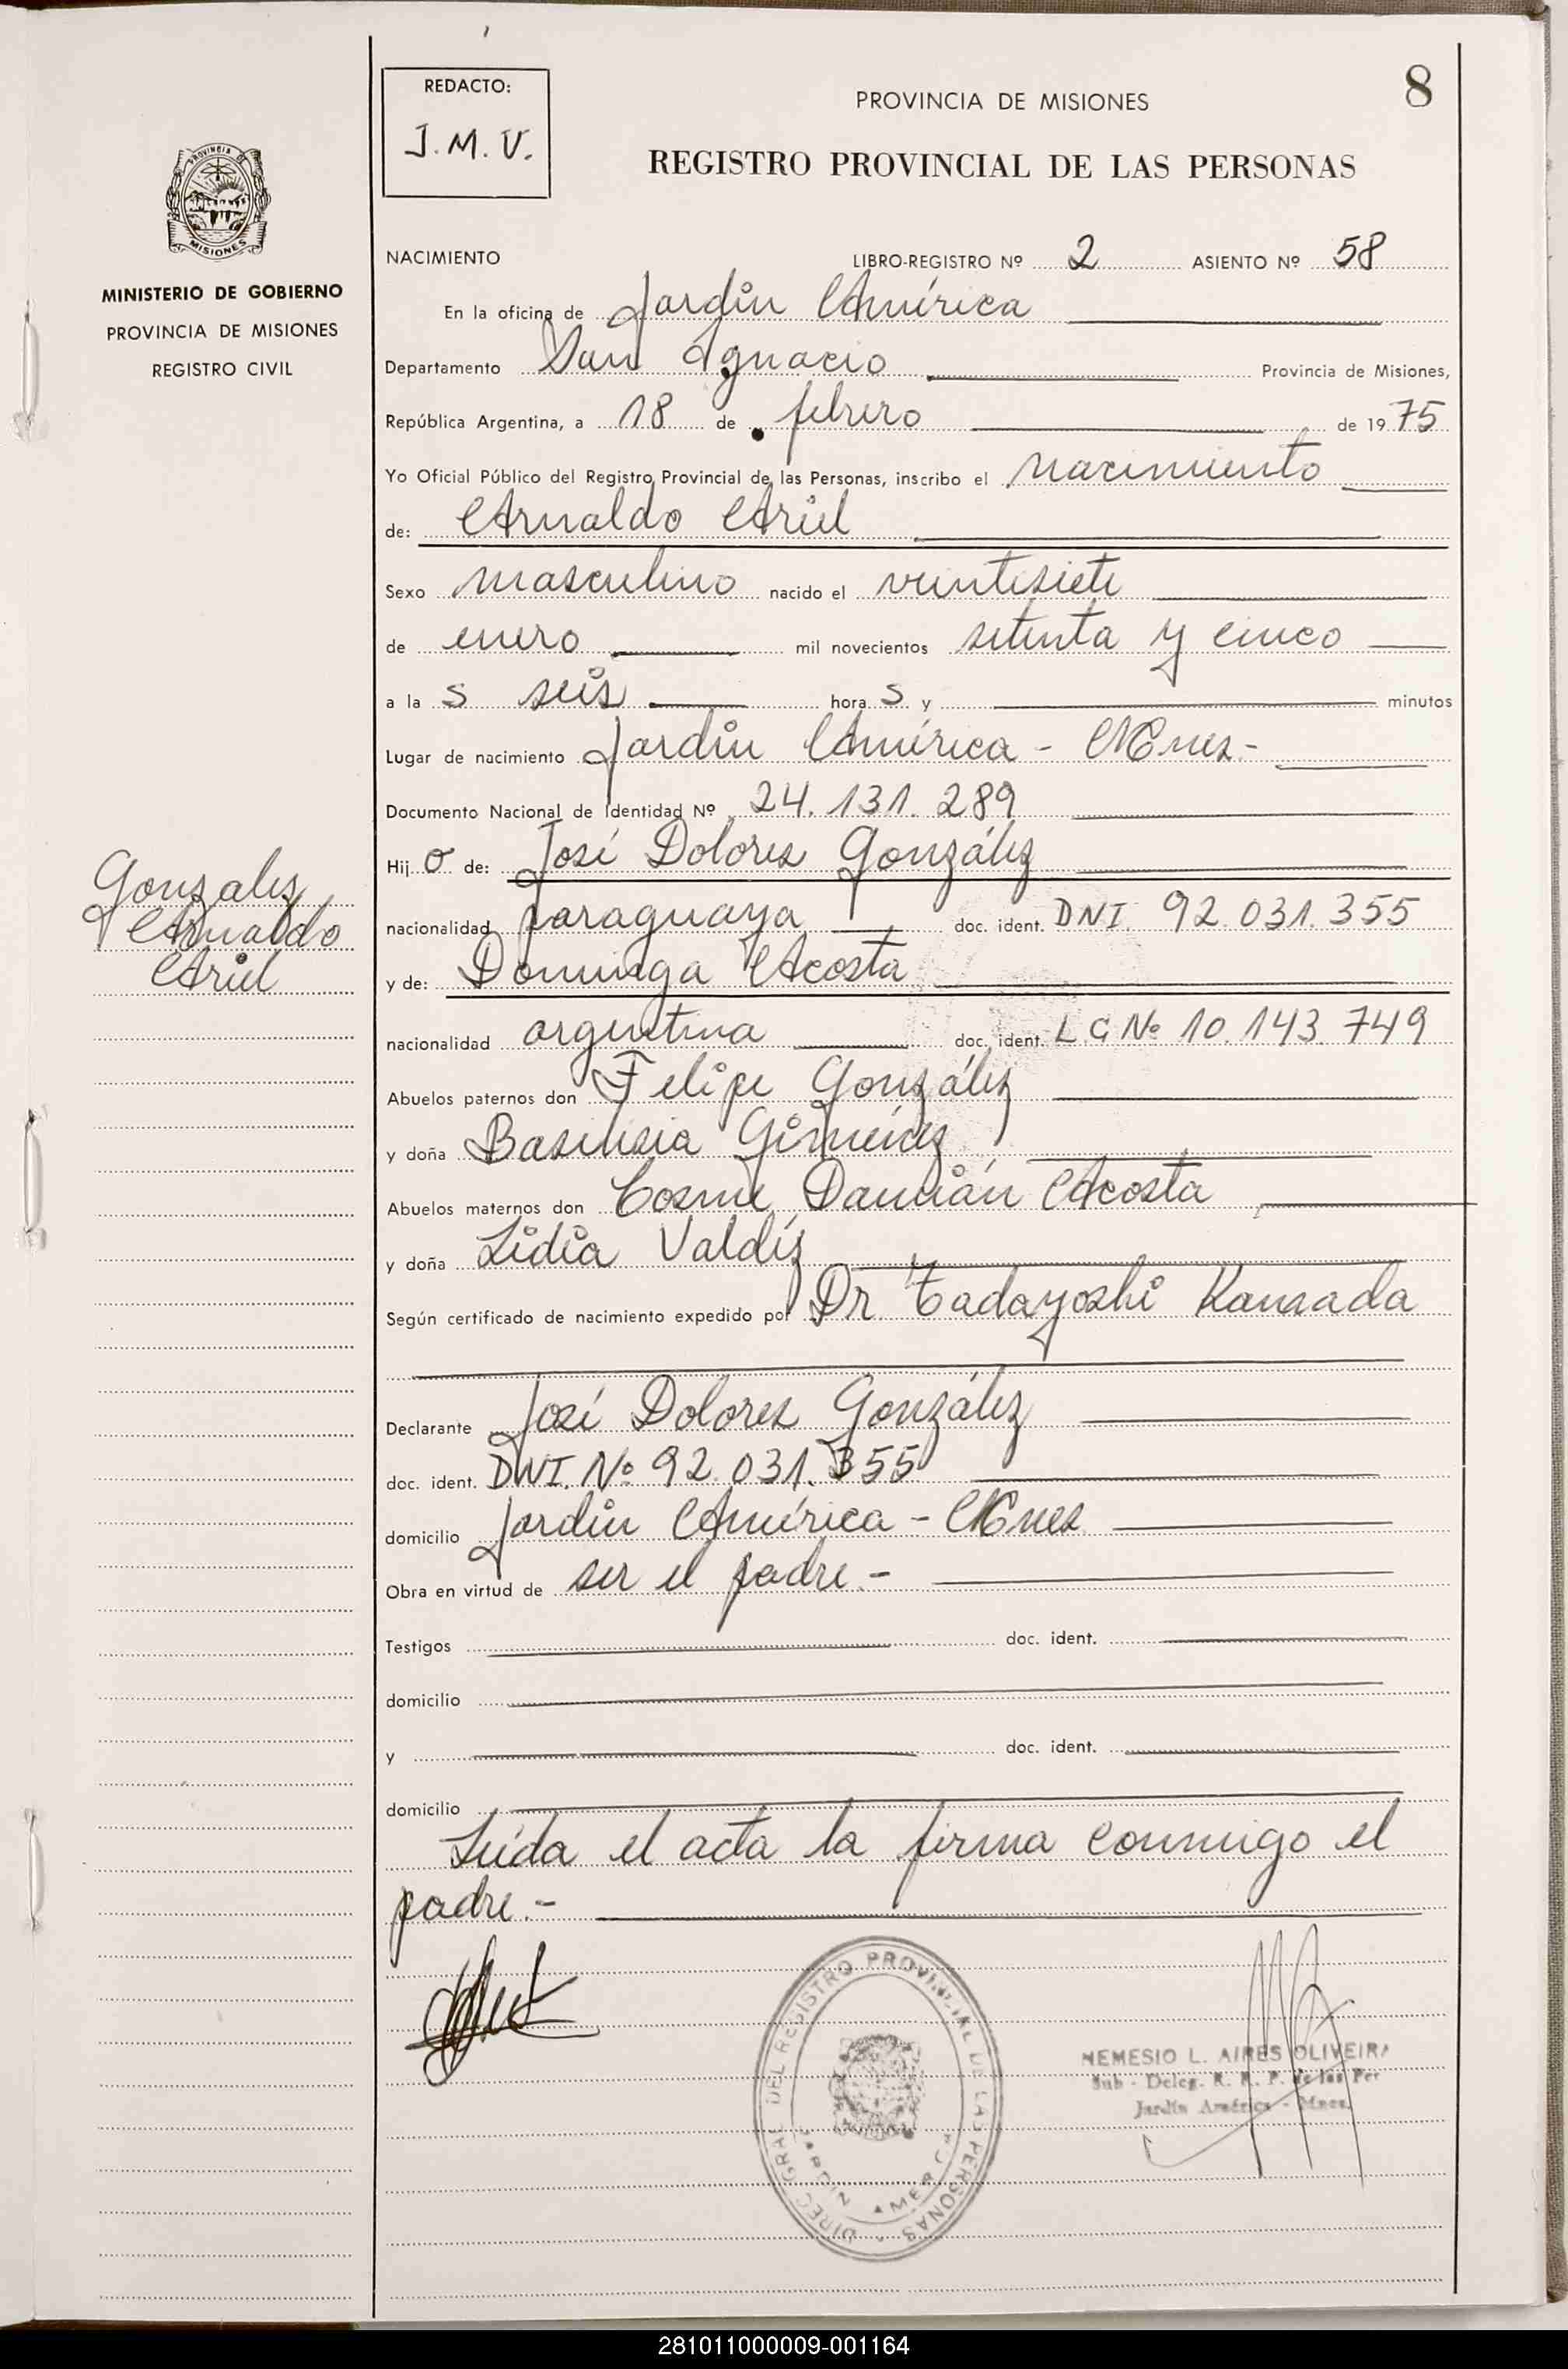 8
REDACTO:
J. M. V.
PROVINCIA DE MISIONES
REGISTRO PROVINCIAL DE LAS PERSONAS
PROVINCIA DE
MISIONES
MINISTERIO DE GOBIERNO
PROVINCIA DE MISIONES
REGISTRO CIVIL
NACIMIENTO LIBRO-REGISTRO Nº 2 ASIENTO Nº 58
En la oficina de Jardín América
Departamento San Ignacio Provincia de Misiones,
República Argentina, a 18 de febrero de 1975
Yo Oficial Público del Registro Provincial de las Personas, inscribo el nacimiento
de: Arnaldo Ariel
Sexo masculino nacido el veintisiete
de enero mil novecientos setenta y cinco
a la s seis hora s y minutos
Lugar de nacimiento Jardín América - Mnes.-
Documento Nacional de Identidad Nº 24.131.289
Hijo de: José Dolores González
nacionalidad paraguaya doc. ident. DNI. 92.031.355
y de: Dominga Acosta
nacionalidad argentina doc. ident. L.C Nº 10.143.749
Abuelos paternos don Felipe González
y doña Basilisia Giménez
Abuelos maternos don Cosme Damián Acosta
y doña Lidia Valdéz
Según certificado de nacimiento expedido por Dr. Tadayoshi Kamada
Gonzalez
Arnaldo
Ariel
Declarante José Dolores González
doc. ident. DNI. Nº 92.031.355
domicilio Jardín América - Mnes
Obra en virtud de ser el padre.-
Testigos doc. ident.
domicilio
y doc. ident.
domicilio
Leída el acta la firma conmigo el
padre.-
DIREC. GRAL. DEL REGISTRO PROVINCIAL DE LAS PERSONAS
JARDIN AMERICA
NEMESIO L. AIRES OLIVEIRA
Sub - Deleg. R. P. de las Per
Jardín América - Mnes.
281011000009-001164